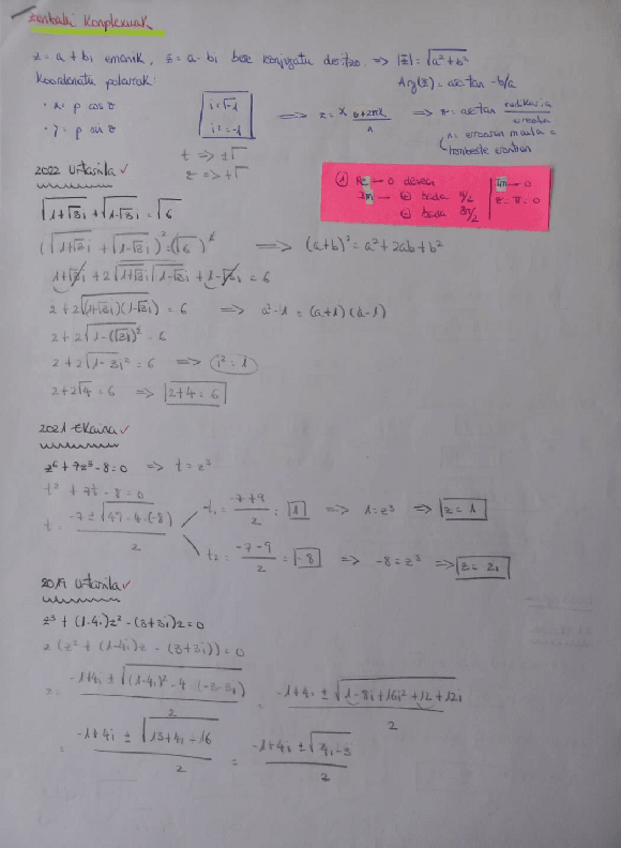 Zenbaki Konplexuak
z = a + bi emanik, z̄ = a - bi bere konjugatu deitzo. => |z̄| = √a² + b²
Koordenatu polarrak: Arg(z̄) = arc tan -b/a
· x = ρ cos
· y = ρ sin
i = √-1
i² = -1
t => ±√
z => +√
2022 Urtarrila ✓
① Re → 0 denean
Im → ⊕ bada π/2
⊖ bada 3π/2
Im → 0
√1+√3i + √1-√3i = √6
(√1+√3i + √1-√3i)² = (√6)² => (a+b)² = a² + 2ab + b²
1+√3i + 2√1+√3i √1-√3i + 1-√3i = 6
2 + 2√(1+√3i)(1-√3i) = 6 => a² - 1 = (a+1)(a-1)
2 + 2√1-(√3i)² = 6
2 + 2√1-3i² = 6 => i² = 1
2 + 2√4 = 6 => 2+4 = 6
2021 Ekaina ✓
z⁶ + 7z³ - 8 = 0 => t = z³
t² + 7t - 8 = 0
t = -7 ± √49 - 4·(-8) / 2
t₁ = -7+9 / 2 = 1 => 1 = z³ => z = 1
t₂ = -7-9 / 2 = -8 => -8 = z³ => z = 2i
2019 Urtarrila ✓
z³ + (1-4i)z² - (3+3i)z = 0
z (z² + (1-4i)z - (3+3i)) = 0
z = -1+4i ± √(1-4i)² - 4·(-3-3i) / 2 = -1+4i ± √1-8i+16i²+12+12i / 2
= -1+4i ± √13+4i-16 / 2 = -1+4i ± √4i-3 / 2